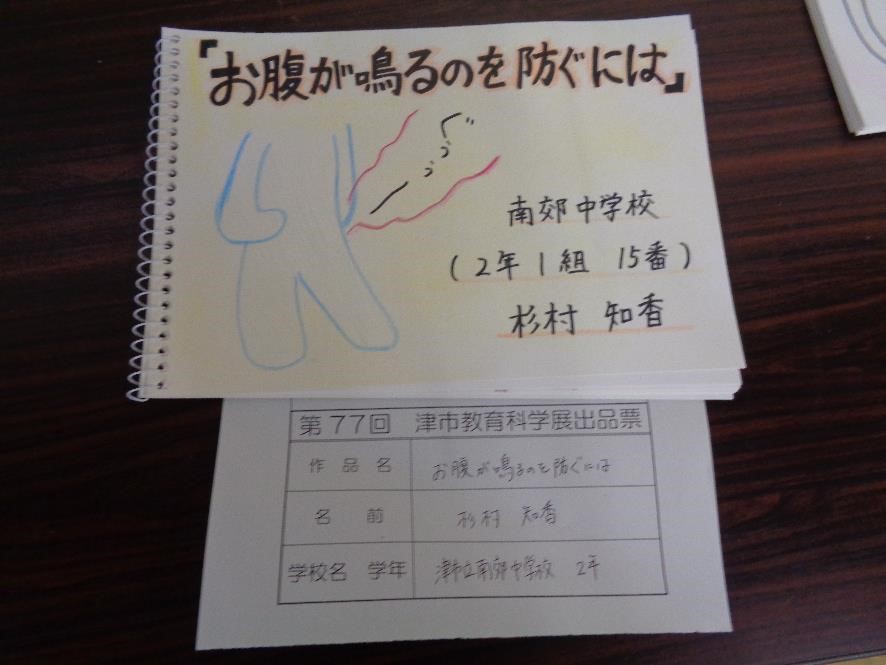 「お腹が鳴るのを防ぐには」
ぐぅ～
南郊中学校
(2年1組 15番)
杉村 知香
第77回 津市教育科学展出品票
作品名 お腹が鳴るのを防ぐには
名前 杉村 知香
学校名 学年 津市立南郊中学校 2年